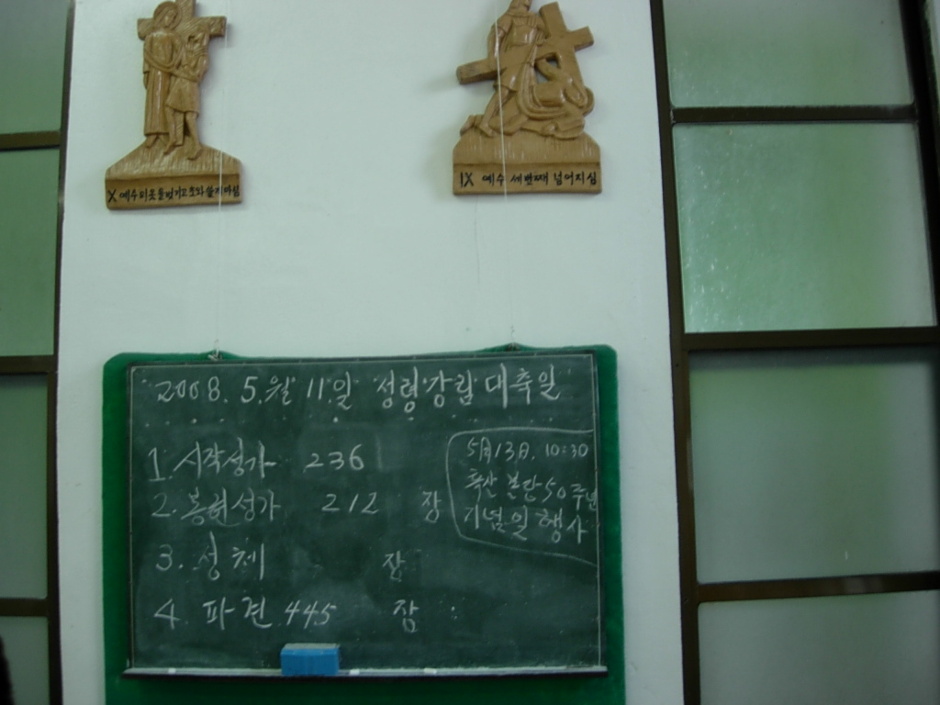 X 예수
IX 예수 세번째 넘어지심
2008. 5.월 11.일 성령강림대축일
1. 시작성가 236
2. 봉헌성가 212 장
3. 성체 장
4. 파견 445 장
5月13日. 10:30
흑산 본당50주년
기념일 행사